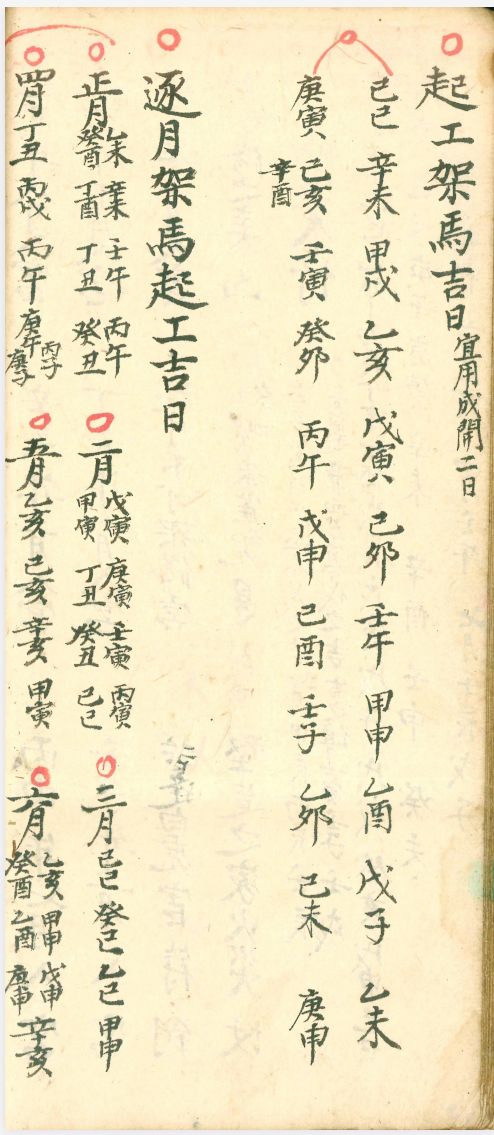 起工架馬吉日 宜用成開二日
己巳 辛未 甲戌 乙亥 戊寅 己卯 壬午 甲申 乙酉 戊子 乙未
庚寅 己亥 辛酉 壬寅 癸卯 丙午 戊申 己酉 壬子 乙卯 己未 庚申
逐月架馬起工吉日
正月 乙未 辛未 壬午 丙午 癸酉 丁酉 丁丑 癸丑 二月 戊寅 庚寅 壬寅 丙寅 甲寅 丁丑 癸丑 己巳 三月 己巳 癸巳 乙巳 甲申
四月 丁丑 丙戌 丙午 庚午 丙子 庚子 五月 乙亥 己亥 辛亥 甲寅 六月 乙亥 甲申 戊申 癸酉 乙酉 庚申 辛亥